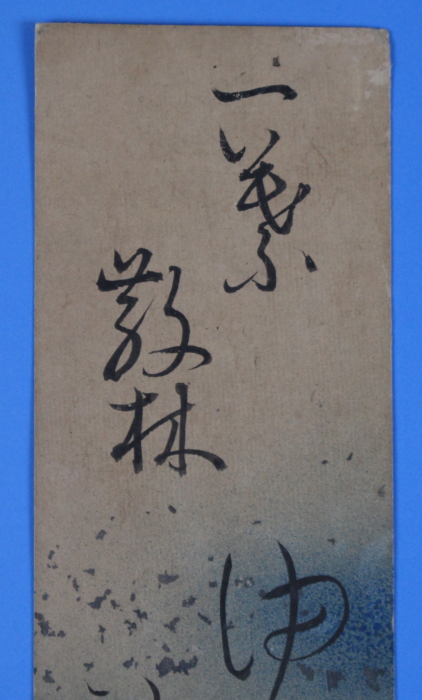 一葉
散林
ゆ